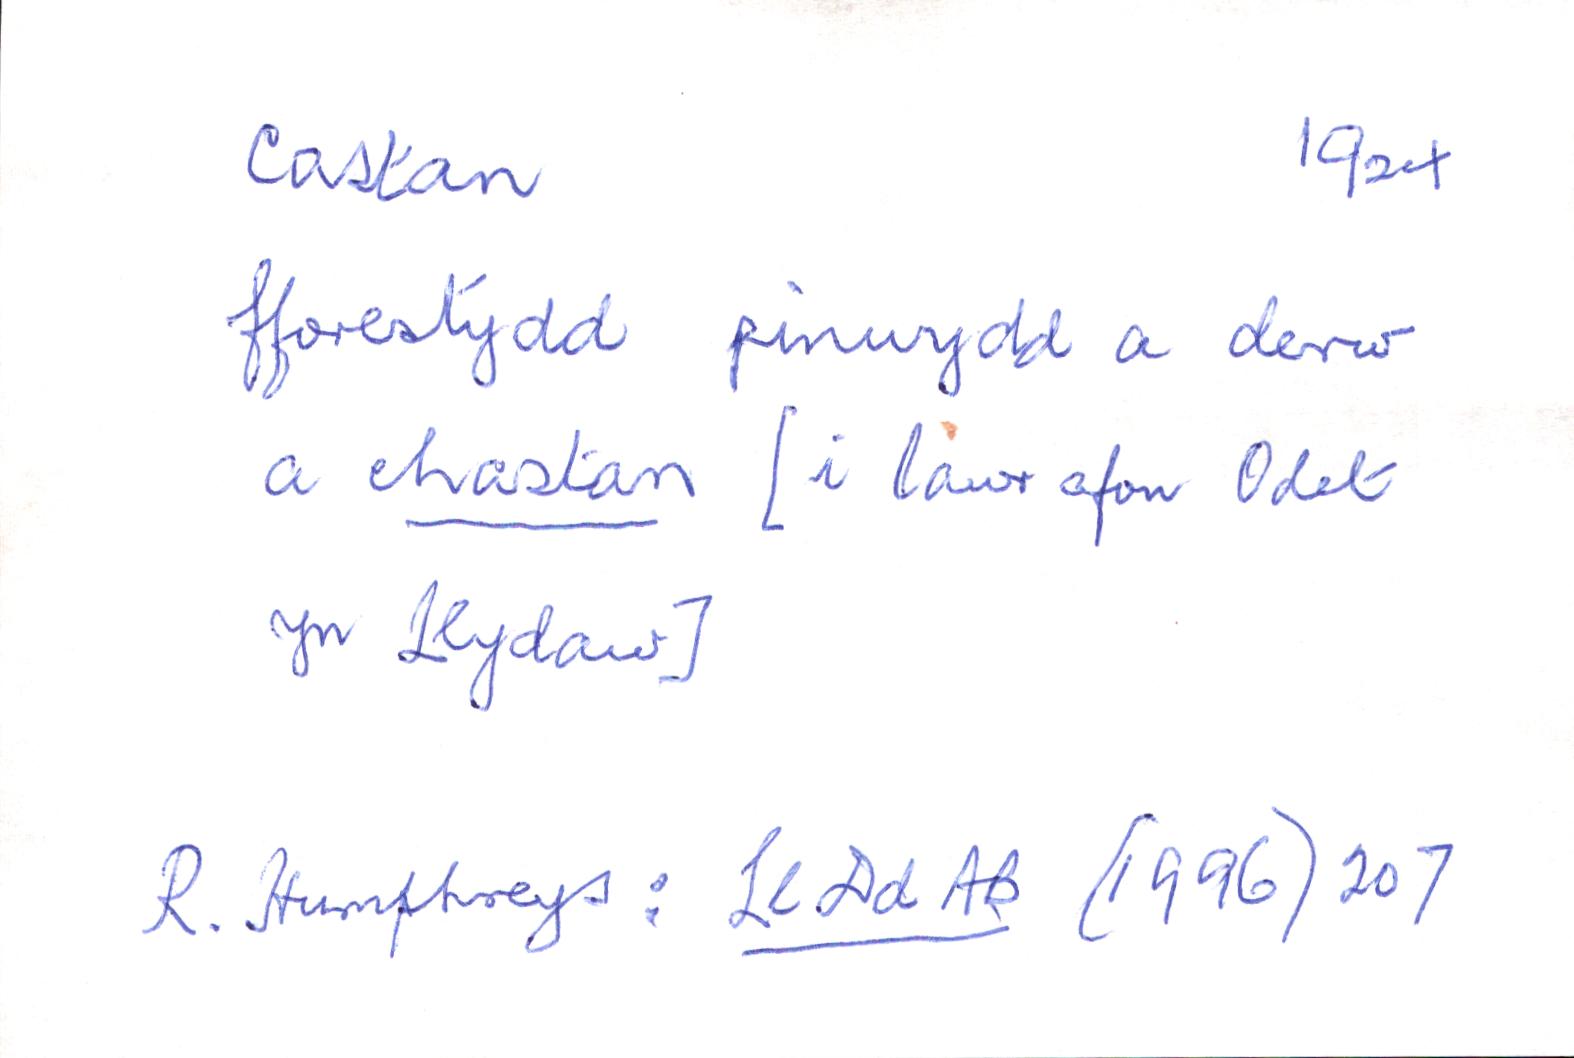 Castan 1924
fforestydd pinwydd a derw
a chastan [i lawr afon Odet
yn Llydaw]
R. Humphreys: Ll Dd AB (1996) 207